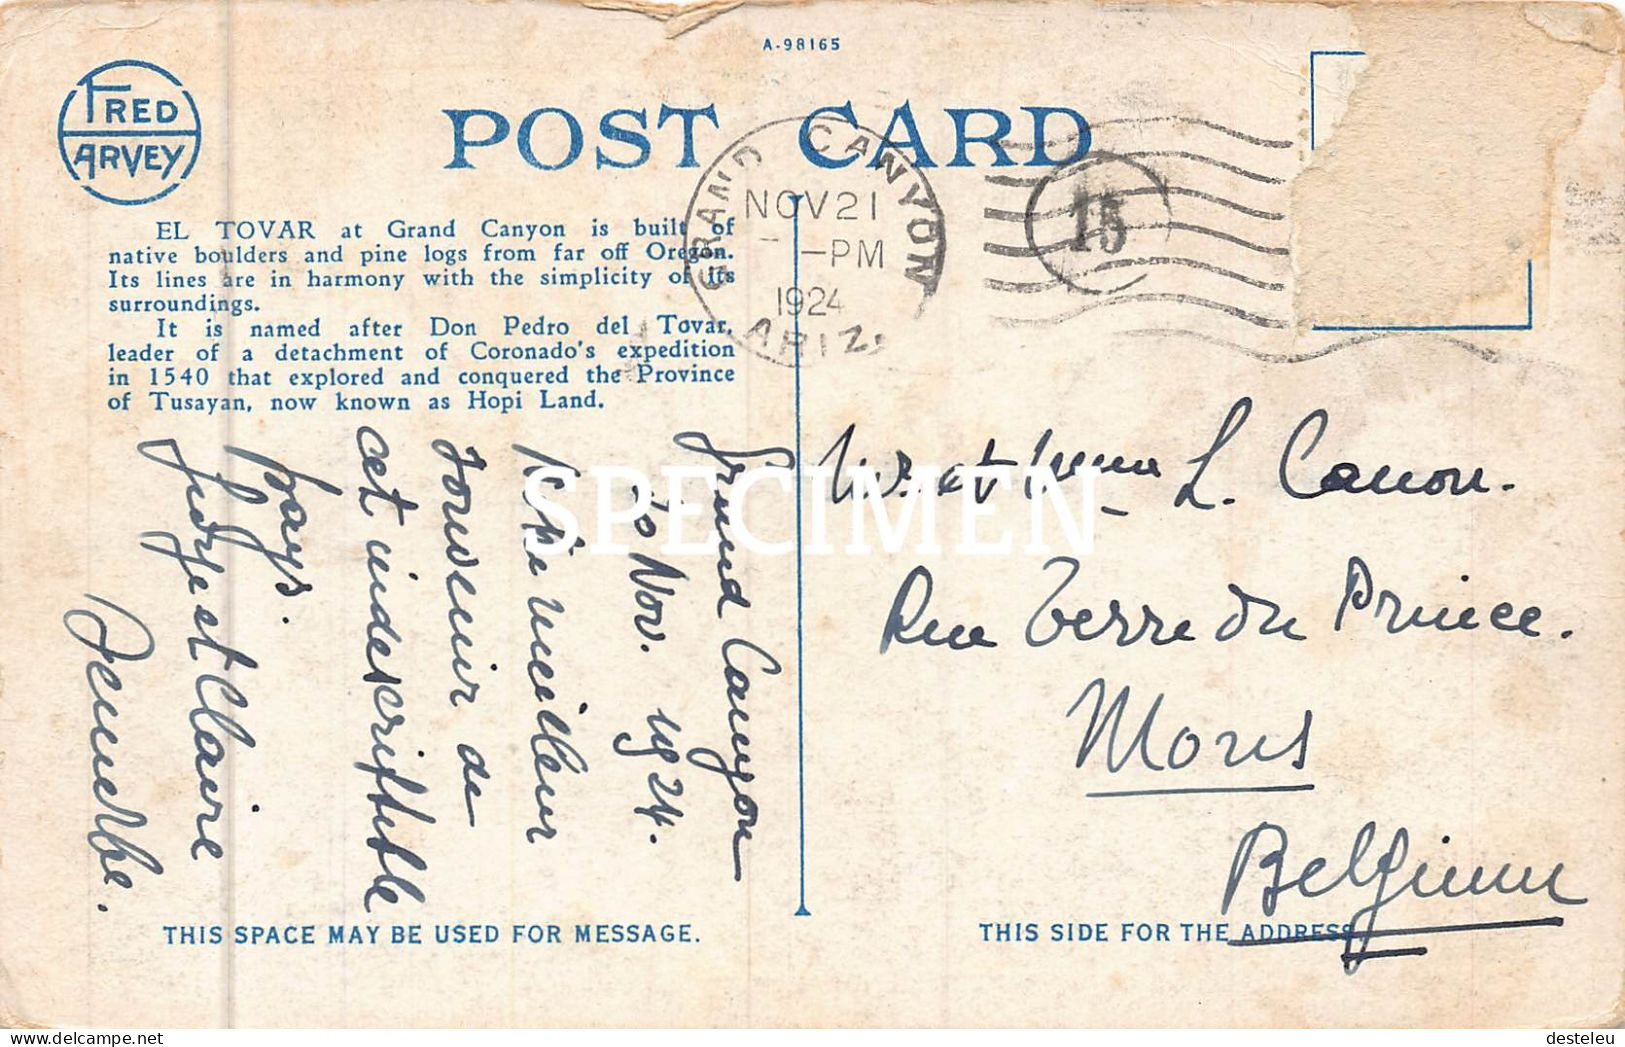 A-98165
FRED
HARVEY
POST CARD
GRAND CANYON
NOV 21
- -PM
1924
ARIZ.
15
EL TOVAR at Grand Canyon is built of
native boulders and pine logs from far off Oregon.
Its lines are in harmony with the simplicity of its
surroundings.
It is named after Don Pedro del Tovar,
leader of a detachment of Coronado's expedition
in 1540 that explored and conquered the Province
of Tusayan, now known as Hopi Land.
Grand Canyon
20 Nov. 1924.
meilleur
souvenir de
cet indescriptible
pays.
Judge et Claire
Mr. et Mme L. Canon.
Rue Terre du Prince.
Mons
Belgium
THIS SPACE MAY BE USED FOR MESSAGE.
THIS SIDE FOR THE ADDRESS
SPECIMEN
delcampe.net
desteleu